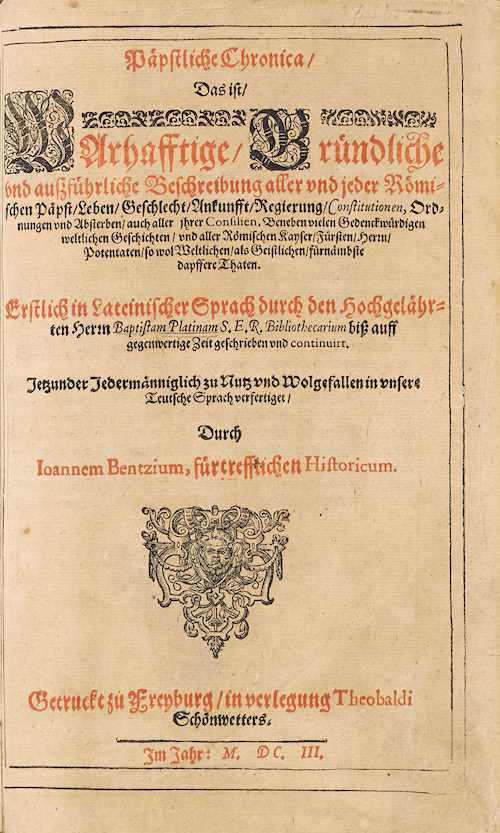 Päpstliche Chronica/
Das ist/
WArhafftige/ Gründliche
vnd außführliche Beschreibung aller vnd jeder Römi-
schen Päpst/Leben/Geschlecht/Ankunfft/Regierung/Constitutionen, Ord-
nungen vnd Absterben/auch aller jhrer Consilien. Beneben vielen Gedenckwürdigen
weltlichen Geschichten/vnd aller Römischen Kayser/Fürsten/Herrn/
Potentaten/so wol Weltlichen/als Geistlichen/fürnämbste
dapffere Thaten.
Erstlich in Lateinischer Sprach durch den Hochgelähr-
ten Herrn Baptistam Platinam S. E. R. Bibliothecarium biß auff
gegenwertige Zeit geschrieben vnd continuirt.
Jetzunder Jedermänniglich zu Nutz vnd Wolgefallen in vnsere
Teutsche Sprach verfertiget/
Durch
Ioannem Bentzium, fürtrefflichen Historicum.
Getruckt zu Freyburg/in verlegung Theobaldi
Schönwetters.
Im Jahr: M. DC. III.